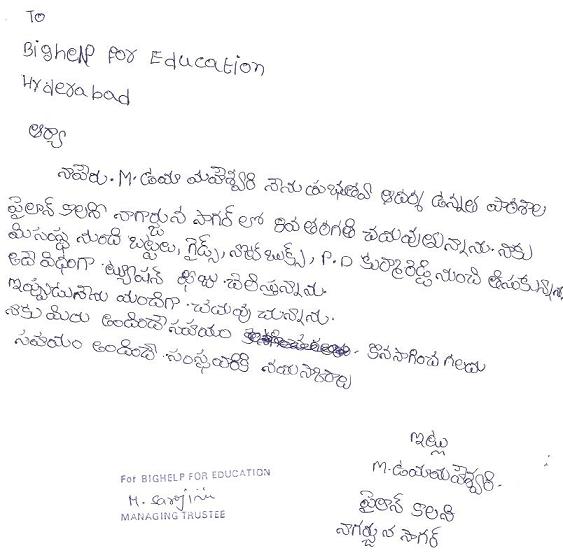 To
Bighelp for Education
Hyderabad
ఆర్యా
నాపేరు. M. ఉమా మహేశ్వరి నేను ప్రభుత్వ ఆదర్శ ఉన్నత పాఠశాల
పైలాన్ కాలని నాగార్జున సాగర్ లో 8వ తరగతి చదువుతున్నాను. నాకు
మి సంస్థ నుండి బట్టలు, గైడ్స్, నోట్ బుక్స్, P.D కుర్మారెడ్డి నుంచి తీసుకున్నాను
అదె విధంగా ట్యూషన్ ఫీజు చెలిస్తున్నారు.
ఇప్పుడు నేను మంచిగా చదువు చున్నాను.
నాకు మిరు అందించె సహాయం కొనసాగించ గలరు
సహాయం అందించె సంస్థవారికి నమస్కారాలు
ఇట్లు
M. ఉమామహేశ్వరి.
పైలాన్ కాలని
నాగార్జున సాగర్
For BIGHELP FOR EDUCATION
M. Sarojini
MANAGING TRUSTEE